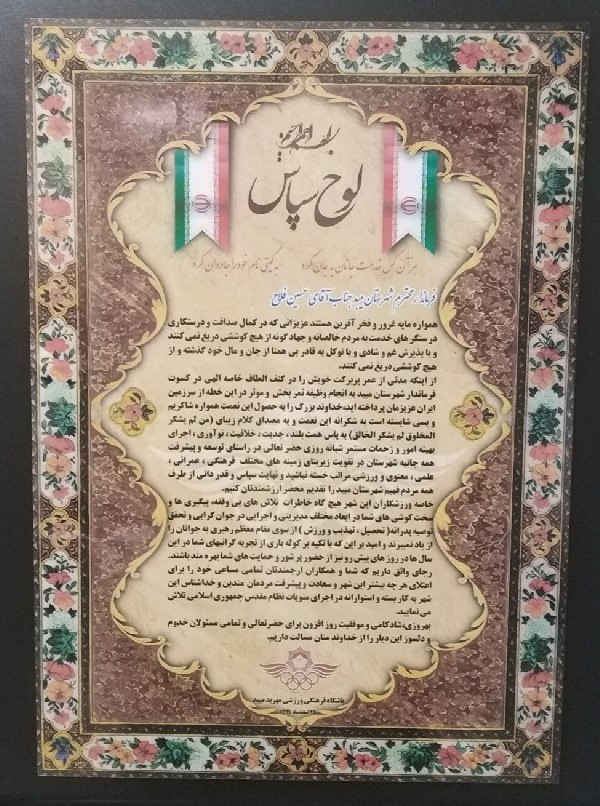 بسم الله الرحمن الرحیم
لوح سپاس
هر آن کس خدمت جانان به جان کرد به گیتی نام خود را جاودان کرد
فرماندار محترم شهرستان میبد جناب آقای حسین فلاح
همواره مایه غرور و فخر آفرین هستند عزیزانی که در کمال صداقت و درستکاری
در سنگر های خدمت به مردم خالصانه و جهاد گونه از هیچ کوششی دریغ نمی کنند
و با پذیرش غم و شادی و با توکل به قادر بی همتا از جان و مال خود گذشته و از
هیچ کوششی دریغ نمی کنند.
از اینکه مدتی از عمر پربرکت خویش را در کنف الطاف خاصه الهی در کسوت
فرماندار شهرستان میبد به انجام وظیفه ثمر بخش و موثر در این خطه از سرزمین
ایران عزیزمان پرداخته اید، خداوند بزرگ را به حصول این نعمت همواره شاکریم
و بسی شایسته است به شکرانه این نعمت و به مصداق کلام زیبای (من لم یشکر
المخلوق لم یشکر الخالق) به پاس همت بلند ، جدیت ، خلاقیت ، نوآوری ، اجرای
بهینه امور و زحمات مستمر شبانه روزی حضرتعالی در راستای توسعه و پیشرفت
همه جانبه شهرستان در تقویت زیربنای زمینه های مختلف فرهنگی ، عمرانی ،
علمی ، معنوی و ورزشی مراتب خسته نباشید و نهایت سپاس و قدر دانی از طرف
همه مردم فهیم شهرستان میبد را تقدیم محضر ارزشمندتان کنیم.
خاصه ورزشکاران این شهر هیچ گاه خاطرات تلاش های بی وقفه، پیگیری ها و
سخت کوشی های شما در ابعاد مختلف مدیریتی و اجرایی در جوان گرایی و تحقق
توصیه پدرانه( تحصیل ، تهذیب و ورزش ) از سوی مقام معظم رهبری به جوانان را
از یاد نمیبرند و امید بر این که با تکیه بر کوله باری از تجربه گرانبهای شما در این
سال ها در روز های پیش رو نیز از حضور پر شور و حمایت های شما بهره مند باشند.
رجای واثق داریم که شما و همکاران ارجمندتان تمامی مساعی خود را برای
اعتلای هر چه بیشتر این شهر و سعادت و پیشرفت مردمان متدین و خداشناس این
شهر به کار بسته و استوارانه در اجرای منویات نظام مقدس جمهوری اسلامی تلاش
می نمایید.
بهروزی،شادکامی و موفقیت روز افزون برای حضرتعالی و تمامی مسئولان خدوم
و دلسوز این دیار را از خداوند منان مسالت داریم.
باشگاه فرهنگی ورزشی مهرید میبد